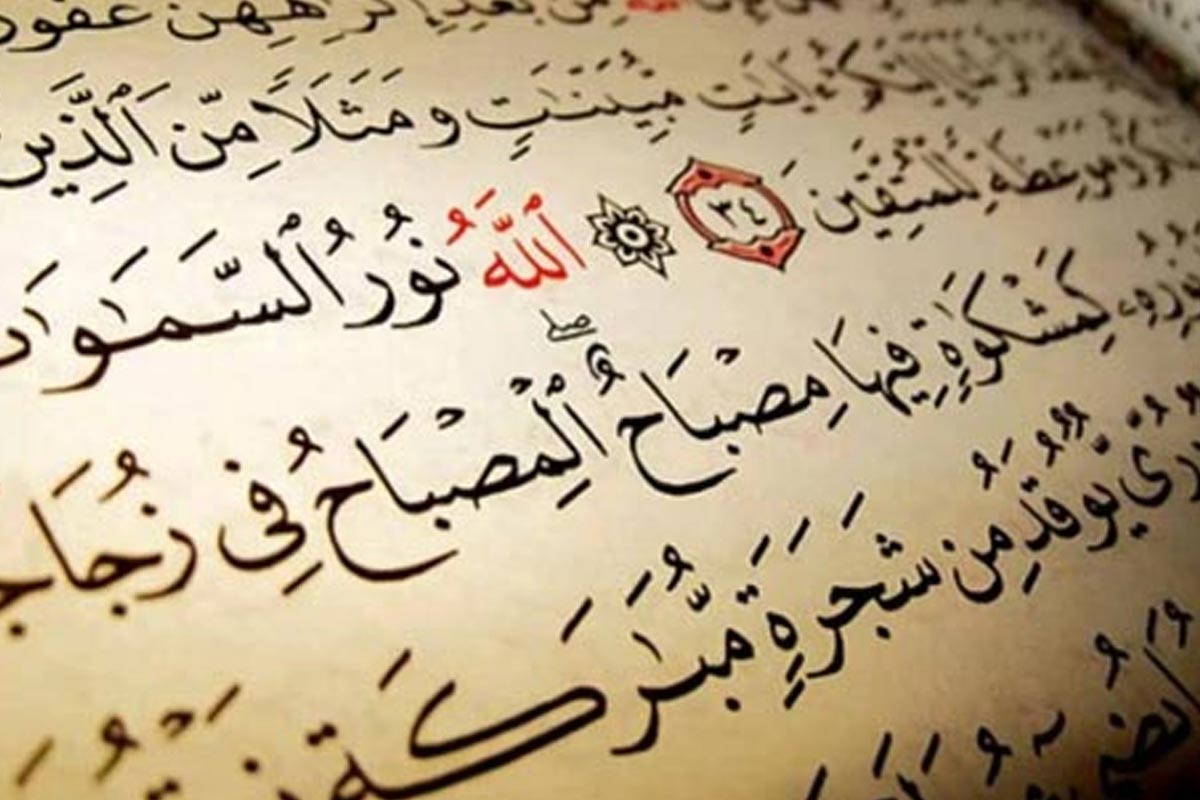 ٱللَّهِ مِنۢ بَعْدِ إِكْرَٰهِهِنَّ غَفُورٌ
إِلَيْكُمْ ءَايَٰتٍ مُّبَيِّنَٰتٍ وَمَثَلًا مِّنَ ٱلَّذِينَ
وَمَوْعِظَةً لِّلْمُتَّقِينَ ٣٤ ۞ ٱللَّهُ نُورُ ٱلسَّمَٰوَٰتِ
نُورِهِۦ كَمِشْكَوٰةٍ فِيهَا مِصْبَاحٌ ۖ ٱلْمِصْبَاحُ فِى زُجَاجَةٍ
دُرِّىٌّ يُوقَدُ مِن شَجَرَةٍ مُّبَٰرَكَةٍ